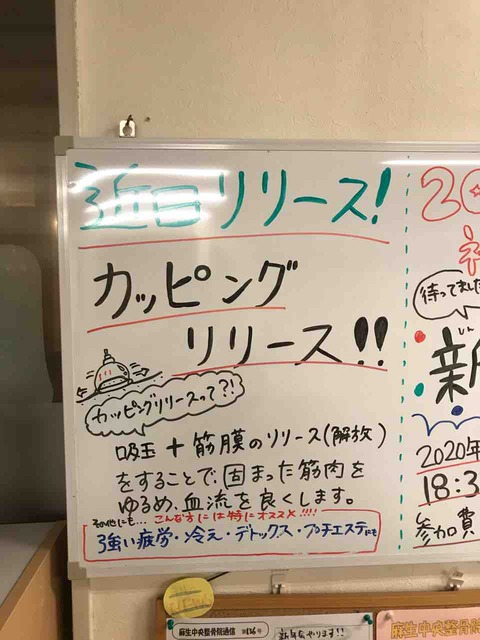 近日リリース!
カッピング
リリース!!
カッピングリリースって?!
吸玉+筋膜のリリース(解放)
をすることで、固まった筋肉を
ゆるめ、血流を良くします。
その他にも… こんな方には特にオススメ!!!!
強い疲労・冷え・デトックス・プチエステにも
20
待ってました
新
2020年
18:3
参加費
麻生中央整骨院通信 第136号
新年会やります!!
麻生中央整骨院